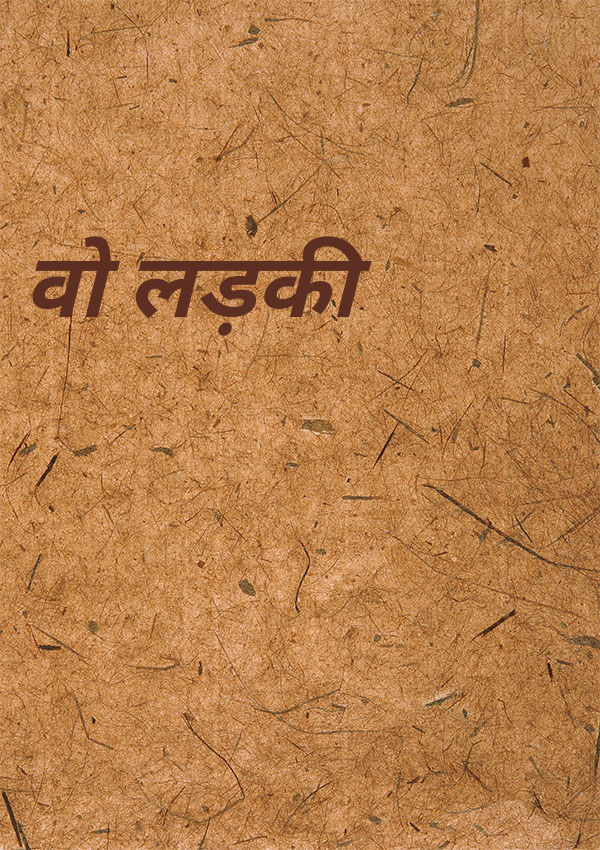 वो लड़की